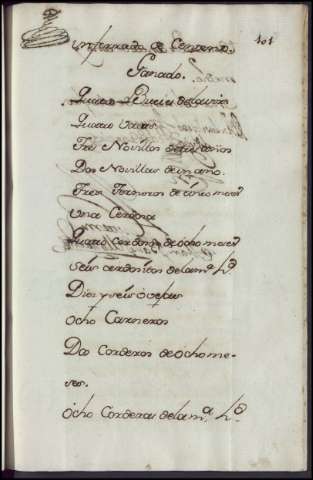 101
un ferrado de Centeno.
Ganado.
Quatro Bueies de labranza
Quatro vacas
Tres Novillos de tres años
Dos Novillas de un año.
Tres Terneros de cinco meses
Una Cerdona
Quatro Cerdones de ocho meses
Seis cerdonitos de la m.ª h.ᵈ
Diez y seis ovejas
ocho Carneros
Dos Corderos de ocho me-
ses.
ocho Corderas de la m.ª h.ᵈ